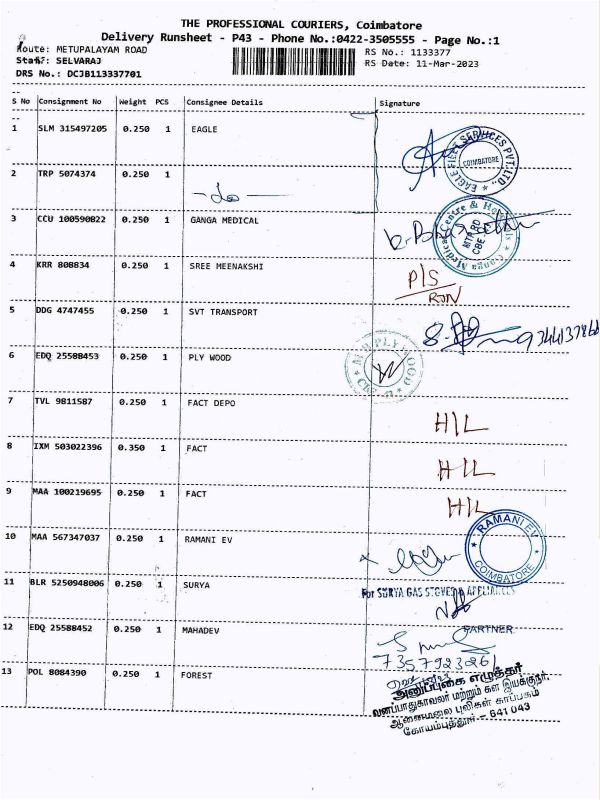 THE PROFESSIONAL COURIERS, Coimbatore
Delivery Runsheet - P43 - Phone No.:0422-3505555 - Page No.:1
Route: METUPALAYAM ROAD
RS No.: 1133377
Staff: SELVARAJ
RS Date: 11-Mar-2023
DRS No.: DCJB113337701
S No Consignment No Weight PCS Consignee Details Signature
1 SLM 315497205 0.250 1 EAGLE
EAGLE FIELD SERVICES PVT. LTD.,
COIMBATORE
2 TRP 5074374 0.250 1
-do-
3 CCU 100590822 0.250 1 GANGA MEDICAL
Ganga Medical Centre & Hospitals
MTP RD
CBE
4 KRR 808834 0.250 1 SREE MEENAKSHI
P/S
5 DDG 4747455 0.250 1 SVT TRANSPORT
6 EDQ 25588453 0.250 1 PLY WOOD
PLYWOOD
7 TVL 9811587 0.250 1 FACT DEPO
H/L
8 IXM 503022396 0.350 1 FACT
H/L
9 MAA 100219695 0.250 1 FACT
H/L
10 MAA 567347037 0.250 1 RAMANI EV
RAMANI EV
COIMBATORE
11 BLR 5250948006 0.250 1 SURYA
For SURYA GAS STOVES & APPLIANCES
PARTNER
12 EDQ 25588452 0.250 1 MAHADEV
7357923261
13 POL 8084390 0.250 1 FOREST
அனுப்புகை எழுத்தர்
வனப்பாதுகாவலர் மற்றும் கள இயக்குநர்,
ஆனைமலை புலிகள் காப்பகம்
கோயம்புத்தூர் - 641 043